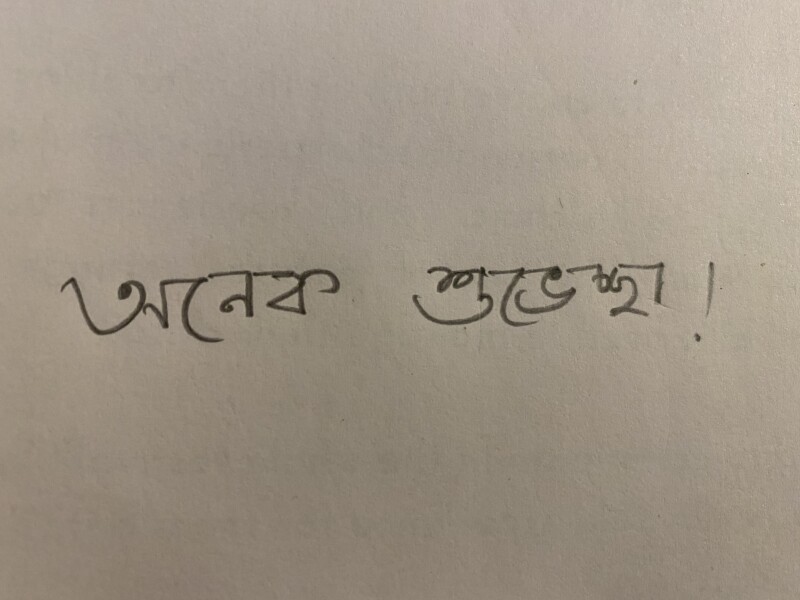 অনেক শুভেচ্ছা!